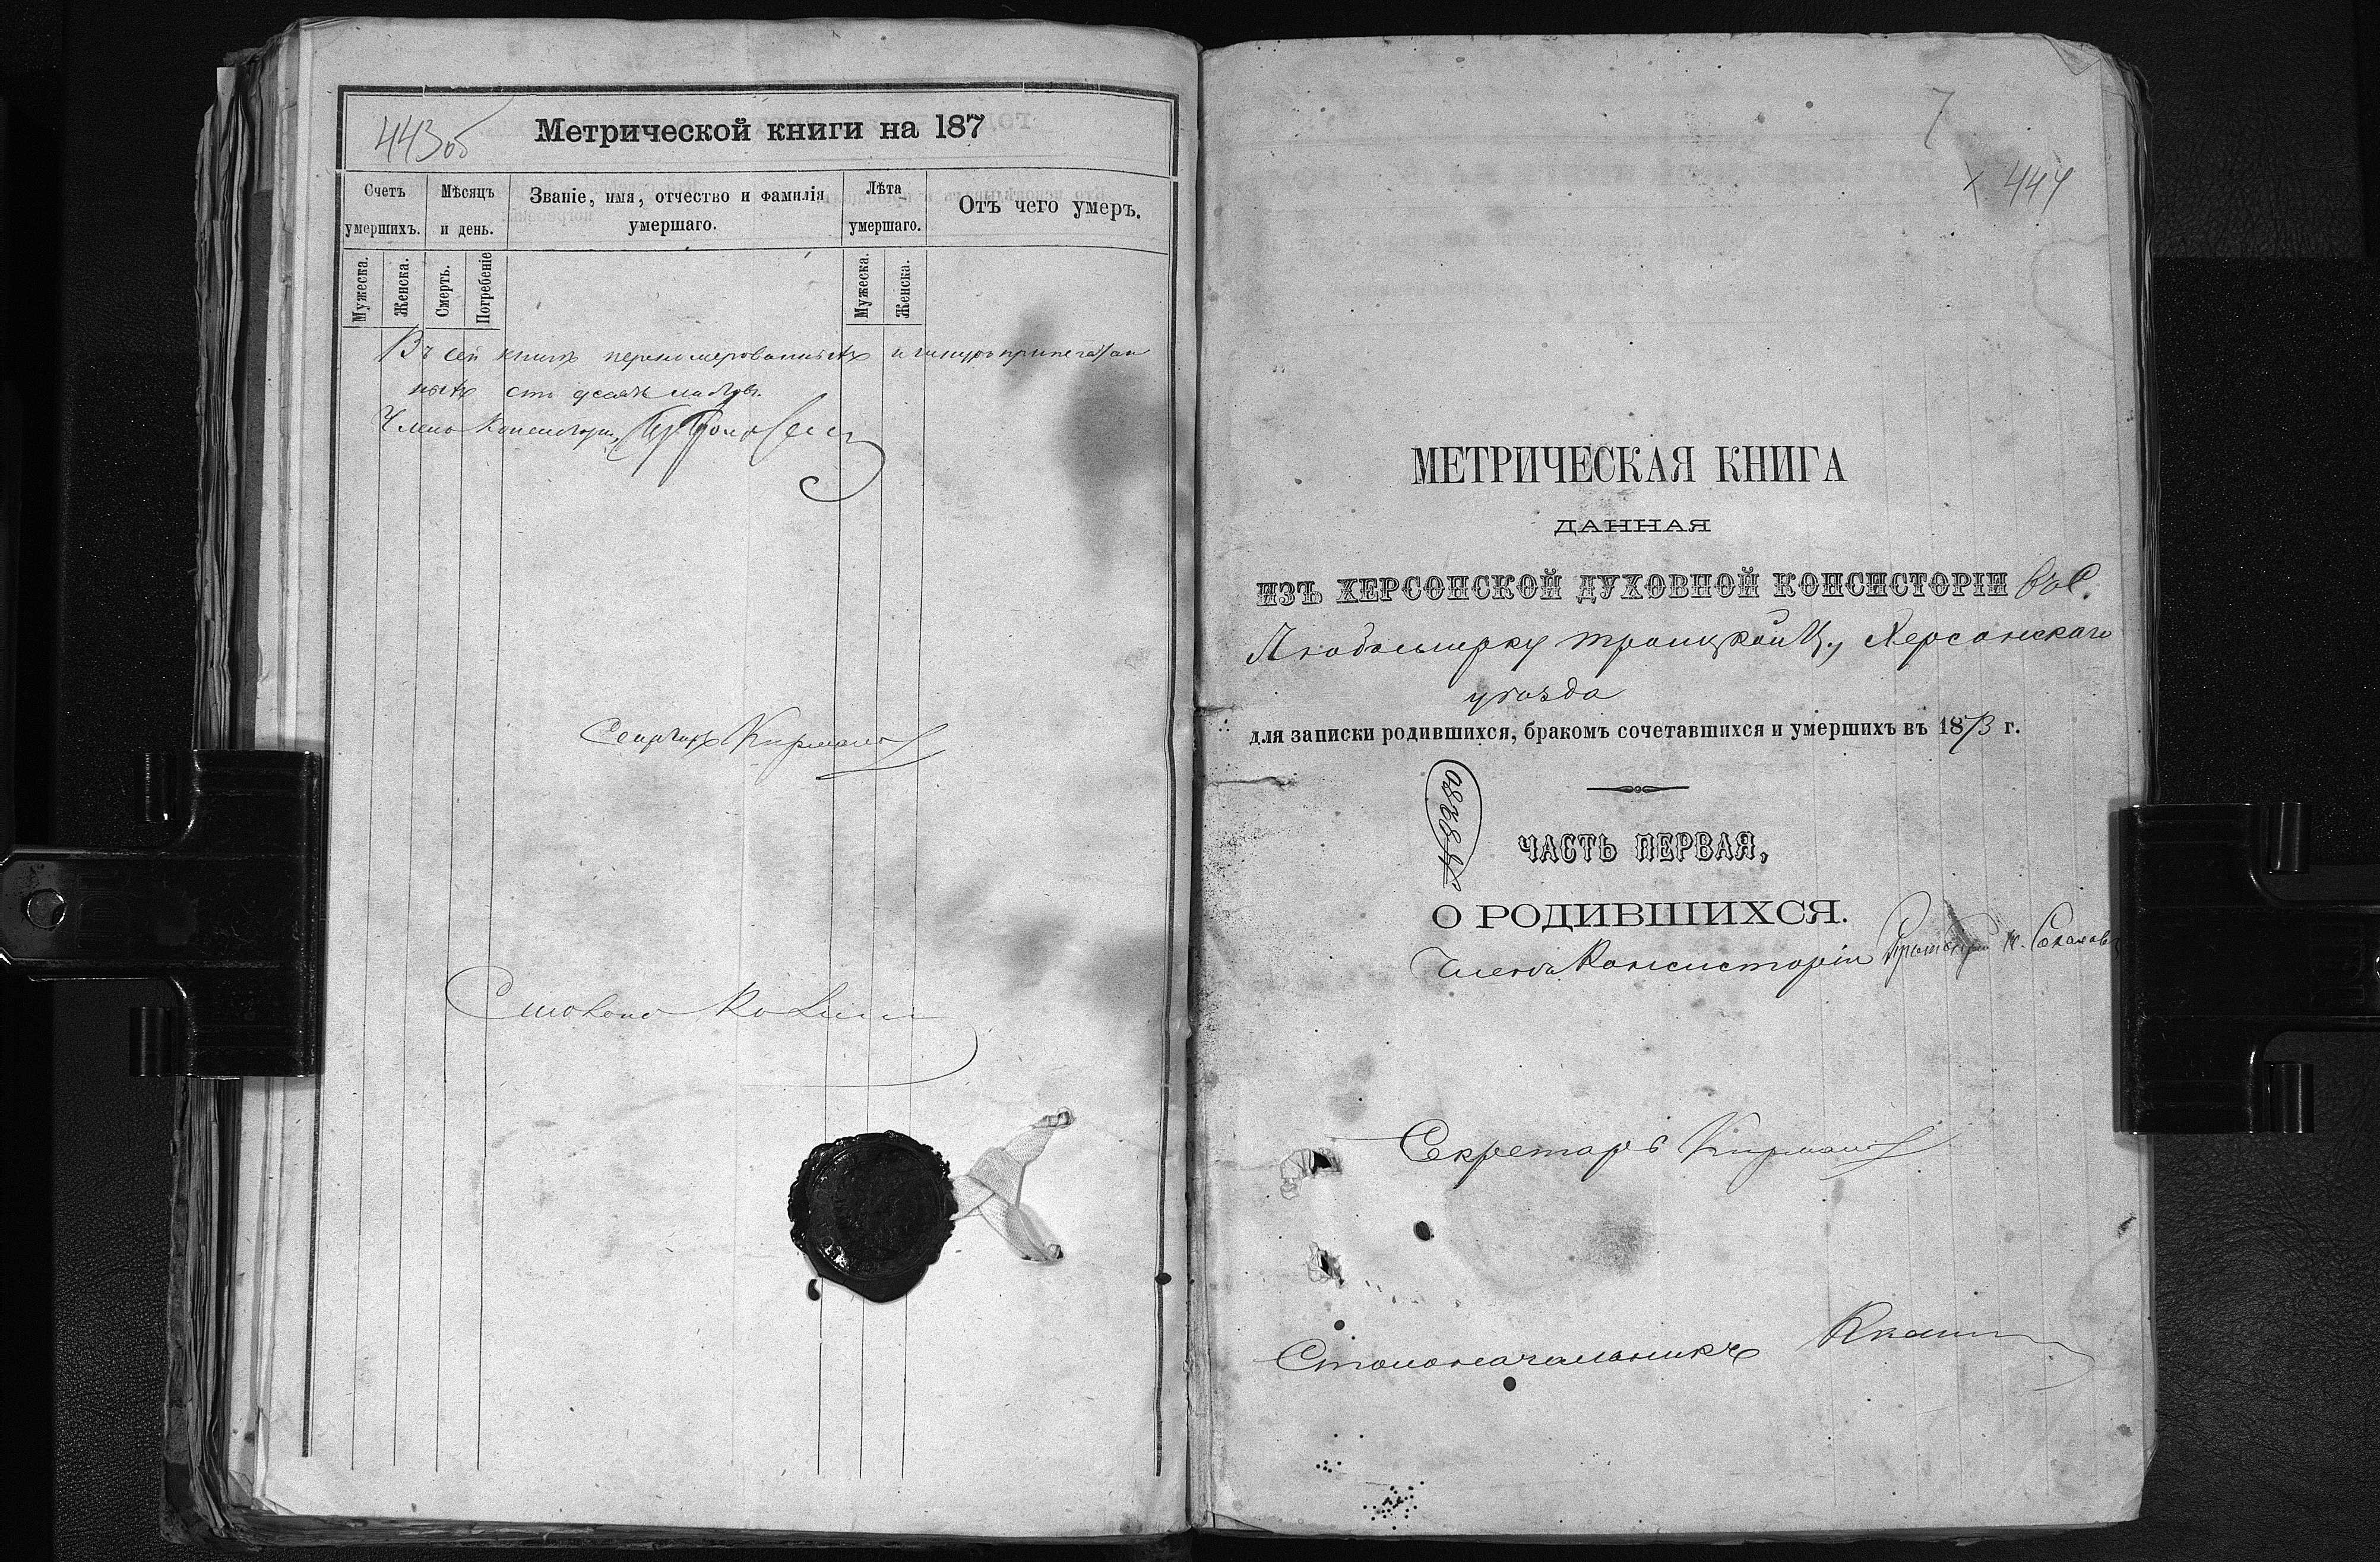 443 об
Метрической книги на 187
Счетъ умершихъ.
Мѣсяцъ и день.
Званіе, имя, отчество и фамилія умершаго.
Лѣта умершаго.
Отъ чего умеръ.
Мужеска.
Женска.
Смерть.
Погребеніе
Мужеска.
Женска.
Въ сей книгѣ перенумерованныхъ и шнуроприпечатан
ныхъ сто десять листовъ.
Членъ Консисторіи,
Секретарь Кирманов
7
х 444
МЕТРИЧЕСКАЯ КНИГА
ДАННАЯ
ИЗЪ ХЕРСОНСКОЙ ДУХОВНОЙ КОНСИСТОРІИ въ С.
Любомирку Троицкой Ц., Херсонскаго
уѣзда
для записки родившихся, бракомъ сочетавшихся и умершихъ въ 1873 г.
ЧАСТЬ ПЕРВАЯ,
О РОДИВШИХСЯ.
Членъ Консисторіи Протоіерей Соколовъ
Секретарь Кирманов
Столоначальникъ